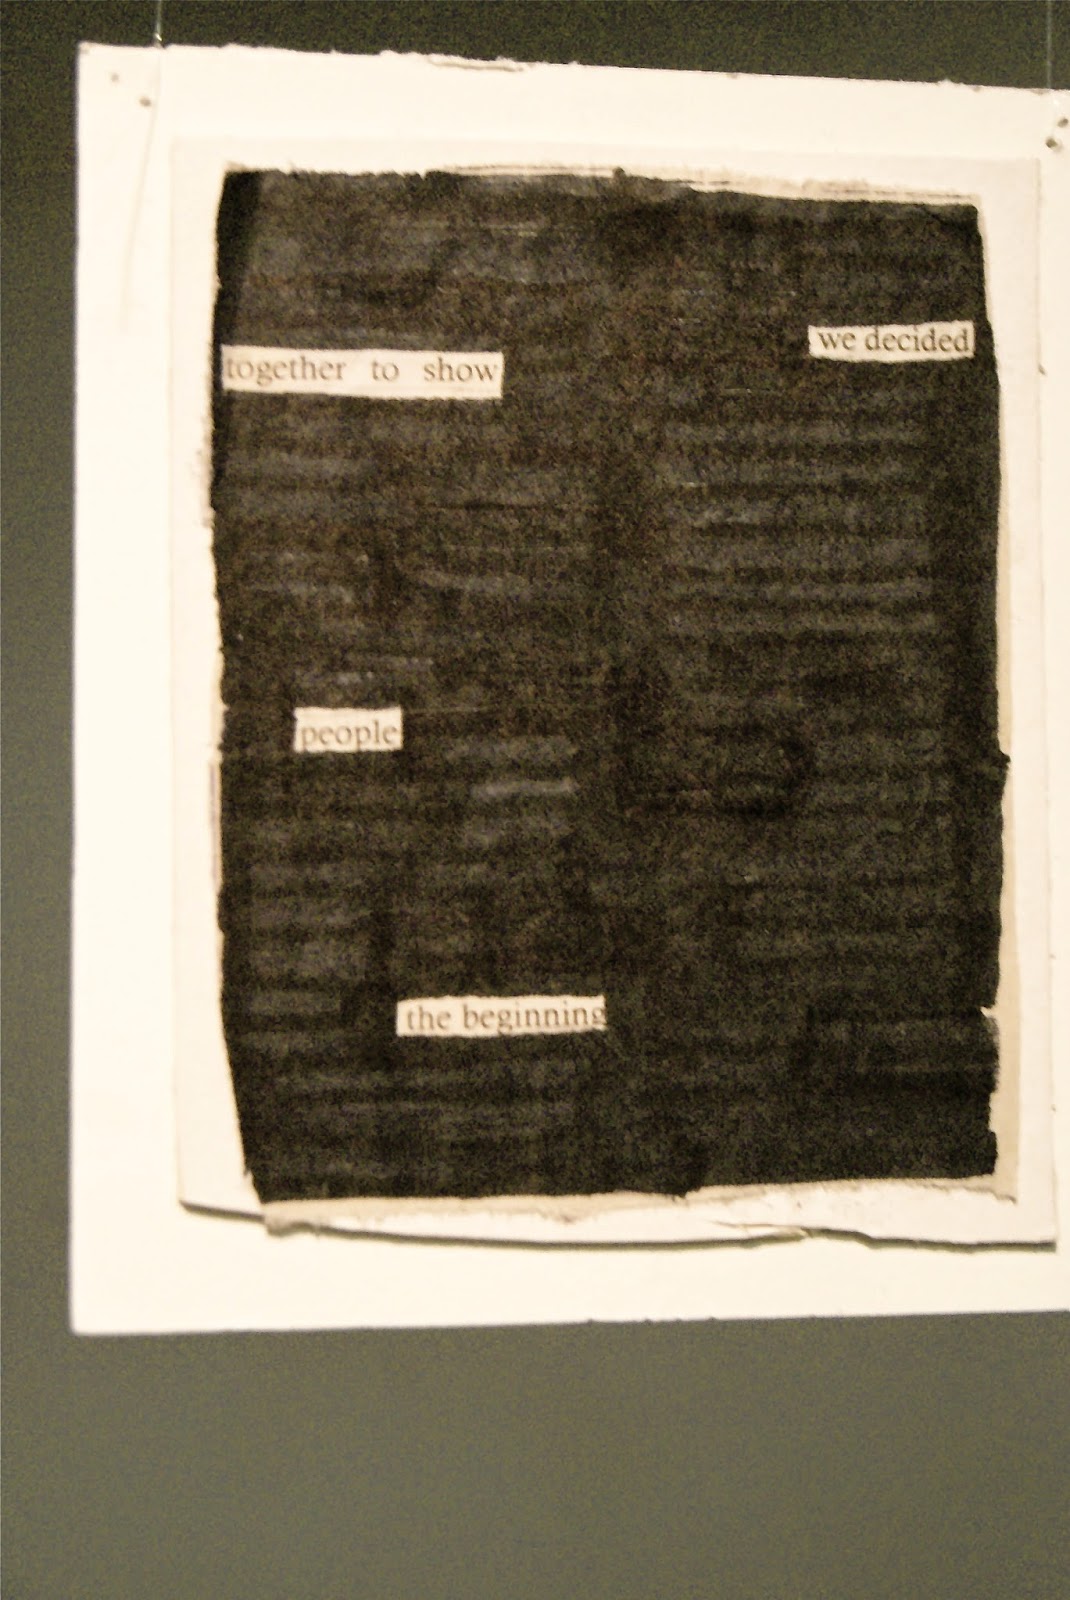 we decided
together to show
people
the beginning